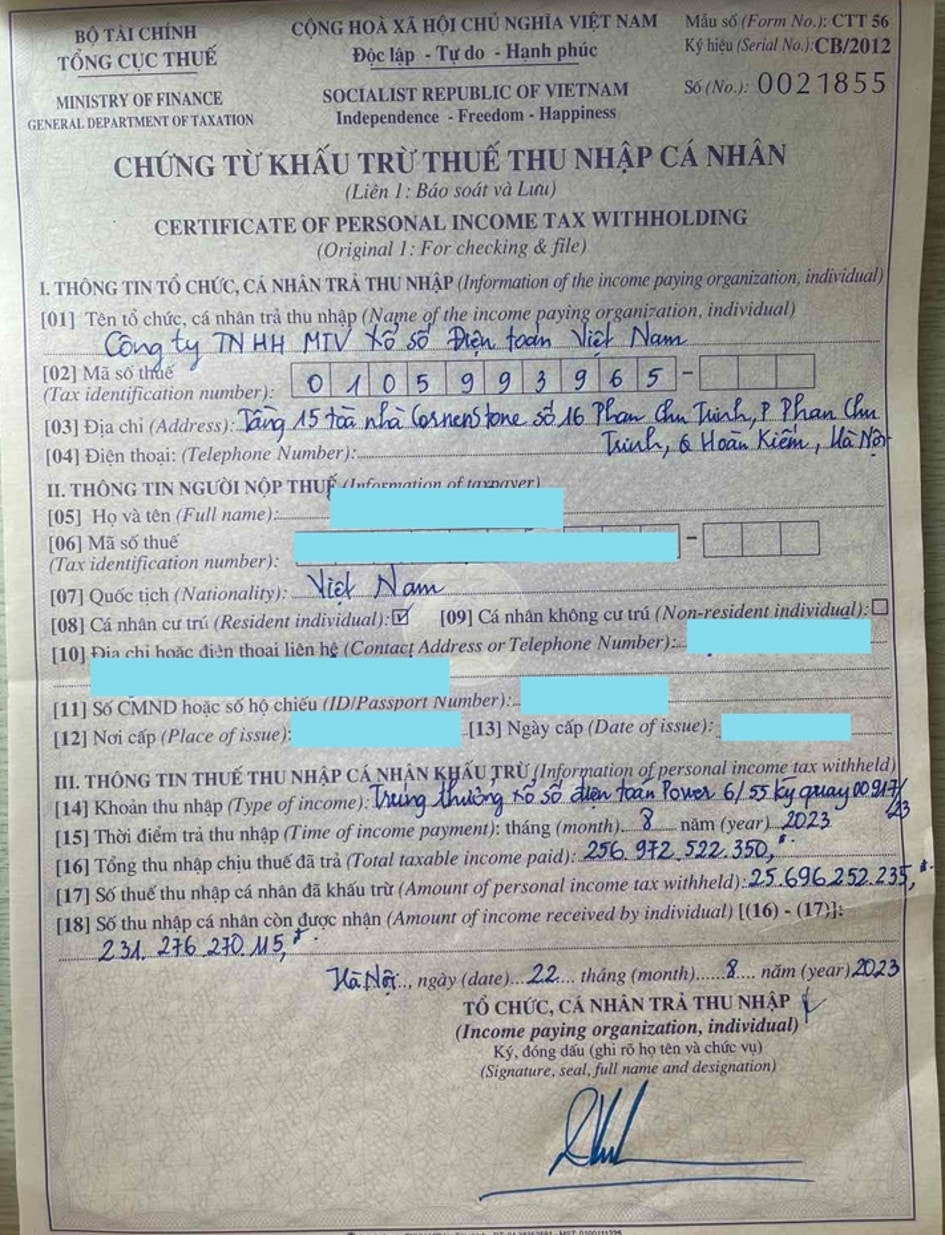 BỘ TÀI CHÍNH
TỔNG CỤC THUẾ
MINISTRY OF FINANCE
GENERAL DEPARTMENT OF TAXATION
CỘNG HOÀ XÃ HỘI CHỦ NGHĨA VIỆT NAM
Độc lập - Tự do - Hạnh phúc
SOCIALIST REPUBLIC OF VIETNAM
Independence - Freedom - Happiness
Mẫu số (Form No.): CTT 56
Ký hiệu (Serial No.): CB/2012
Số (No.): 0021855
CHỨNG TỪ KHẤU TRỪ THUẾ THU NHẬP CÁ NHÂN
(Liên 1: Báo soát và Lưu)
CERTIFICATE OF PERSONAL INCOME TAX WITHHOLDING
(Original 1: For checking & file)
I. THÔNG TIN TỔ CHỨC, CÁ NHÂN TRẢ THU NHẬP (Information of the income paying organization, individual)
[01] Tên tổ chức, cá nhân trả thu nhập (Name of the income paying organization, individual)
Công ty TNHH MTV Xổ số Điện toán Việt Nam
[02] Mã số thuế
(Tax identification number): 0105993965 -
[03] Địa chỉ (Address): Tầng 15 toà nhà CornerStone số 16 Phan Chu Trinh, P Phan Chu
Trinh, Q Hoàn Kiếm, Hà Nội
[04] Điện thoại: (Telephone Number):
II. THÔNG TIN NGƯỜI NỘP THUẾ (Information of taxpayer)
[05] Họ và tên (Full name):
[06] Mã số thuế
(Tax identification number): -
[07] Quốc tịch (Nationality): Việt Nam
[08] Cá nhân cư trú (Resident individual): ☑ [09] Cá nhân không cư trú (Non-resident individual): ☐
[10] Địa chỉ hoặc điện thoại liên hệ (Contact Address or Telephone Number):
[11] Số CMND hoặc số hộ chiếu (ID/Passport Number):
[12] Nơi cấp (Place of issue): [13] Ngày cấp (Date of issue):
III. THÔNG TIN THUẾ THU NHẬP CÁ NHÂN KHẤU TRỪ (Information of personal income tax withheld)
[14] Khoản thu nhập (Type of income): Trúng thưởng xổ số điện toán Power 6/55 kỳ quay 00917/
23
[15] Thời điểm trả thu nhập (Time of income payment): tháng (month) 8 năm (year) 2023
[16] Tổng thu nhập chịu thuế đã trả (Total taxable income paid): 256.972.522.350,
[17] Số thuế thu nhập cá nhân đã khấu trừ (Amount of personal income tax withheld): 25.696.252.235,
[18] Số thu nhập cá nhân còn được nhận (Amount of income received by individual) [(16) - (17)]:
231.276.270.115,
Hà Nội, ngày (date) 22 tháng (month) 8 năm (year) 2023
TỔ CHỨC, CÁ NHÂN TRẢ THU NHẬP
(Income paying organization, individual)
Ký, đóng dấu (ghi rõ họ tên và chức vụ)
(Signature, seal, full name and designation)